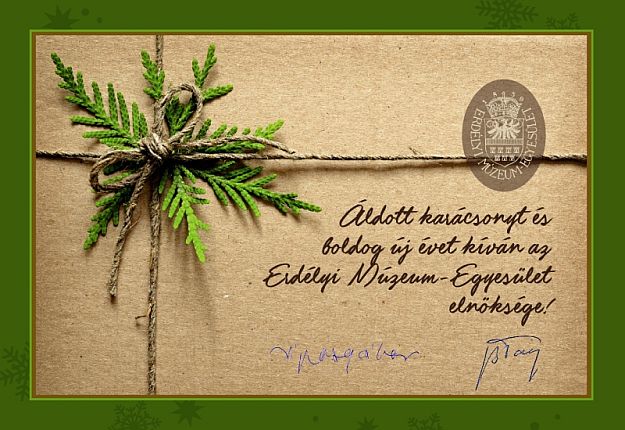 ERDÉLYI MÚZEUM-EGYESÜLET
Áldott karácsonyt és
boldog új évet kíván az
Erdélyi Múzeum-Egyesület
elnöksége!